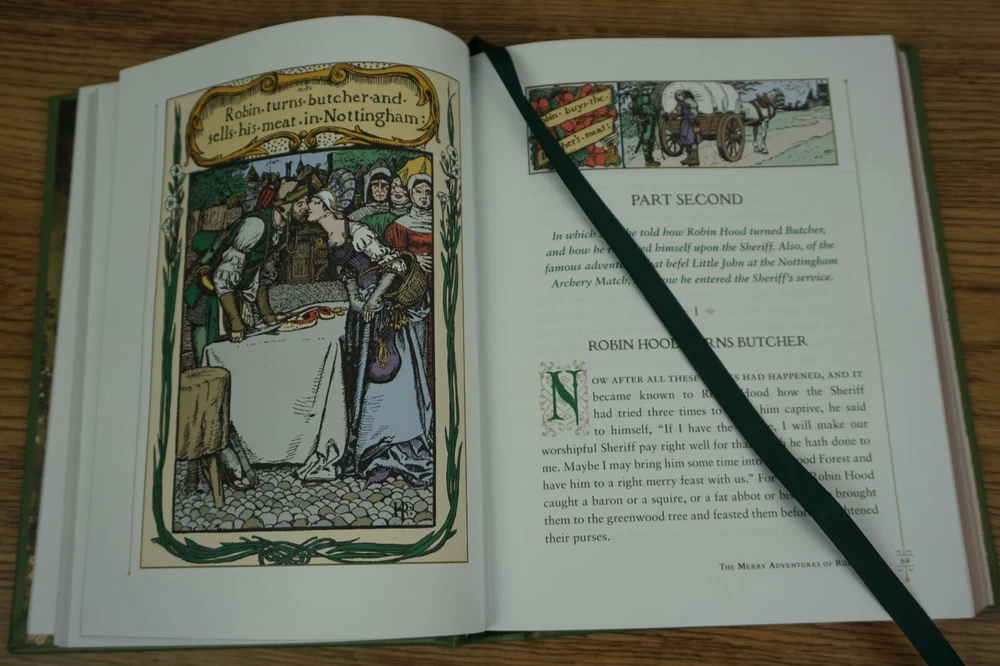 Robin·turns·butcher·and·
sells·his·meat·in·Nottingham:
buys·the·
meat:
PART SECOND
In which told how Robin Hood turned Butcher,
and how he himself upon the Sheriff. Also, of the
famous that befel Little John at the Nottingham
Archery Match, how he entered the Sheriff's service.
I
ROBIN HOOD TURNS BUTCHER
NOW AFTER ALL THESE HAD HAPPENED, AND IT
became known to Hood how the Sheriff
had tried three times to him captive, he said
to himself, “If I have the I will make our
worshipful Sheriff pay right well for that he hath done to
me. Maybe I may bring him some time into Forest and
have him to a right merry feast with us.” For Robin Hood
caught a baron or a squire, or a fat abbot or brought
them to the greenwood tree and feasted them before
their purses.
THE MERRY ADVENTURES OF